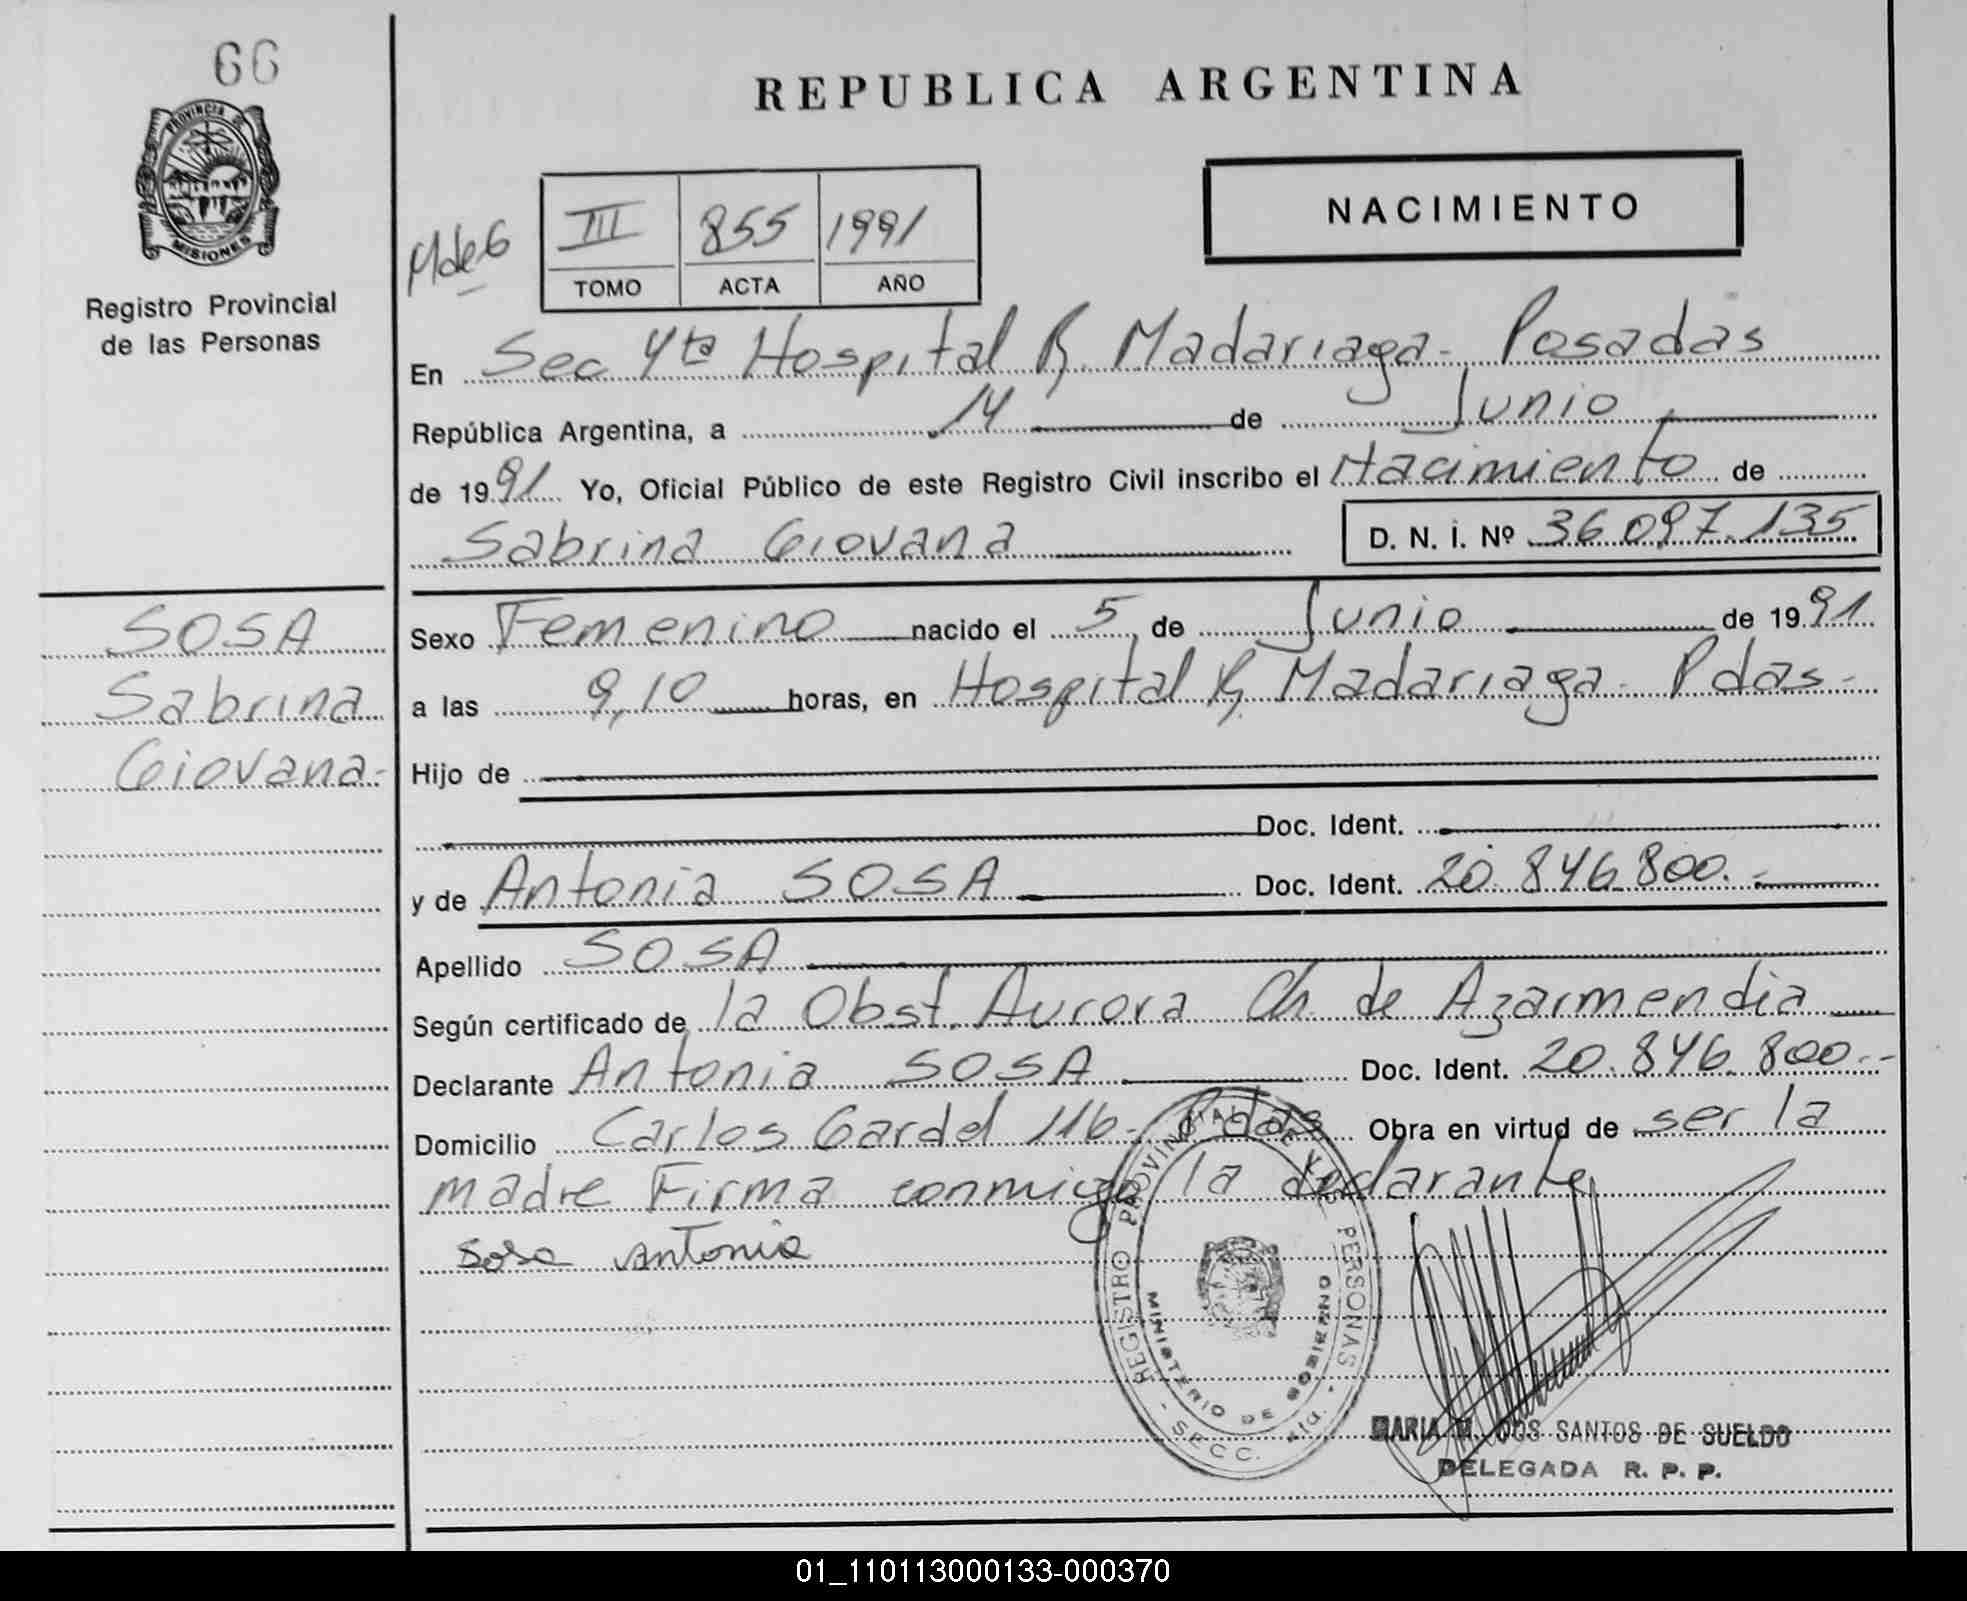 66
PROVINCIA DE
MISIONES
Registro Provincial
de las Personas
REPUBLICA ARGENTINA
NACIMIENTO
MdeG
III 855 1991
TOMO ACTA AÑO
En Sec 4ta Hospital R. Madariaga - Posadas
República Argentina, a 14 de Junio
de 1991 Yo, Oficial Público de este Registro Civil inscribo el Nacimiento de
Sabrina Giovana D. N. I. Nº 36.097.135
SOSA
Sabrina
Giovana.-
Sexo Femenino nacido el 5 de Junio de 1991
a las 9,10 horas, en Hospital R. Madariaga - Pdas -
Hijo de
Doc. Ident.
y de Antonia SOSA Doc. Ident. 20.846.800.-
Apellido SOSA
Según certificado de la Obst. Aurora Ch. de Azarmendia
Declarante Antonia SOSA Doc. Ident. 20.846.800.-
Domicilio Carlos Gardel 116 - Pdas Obra en virtud de ser la
madre Firma conmigo la declarante
Sosa Antonia
REGISTRO PROVINCIAL DE LAS PERSONAS
MINISTERIO DE GOBIERNO
- SECC. 4ta. -
MARIA M. DOS SANTOS DE SUELDO
DELEGADA R. P. P.
01_110113000133-000370